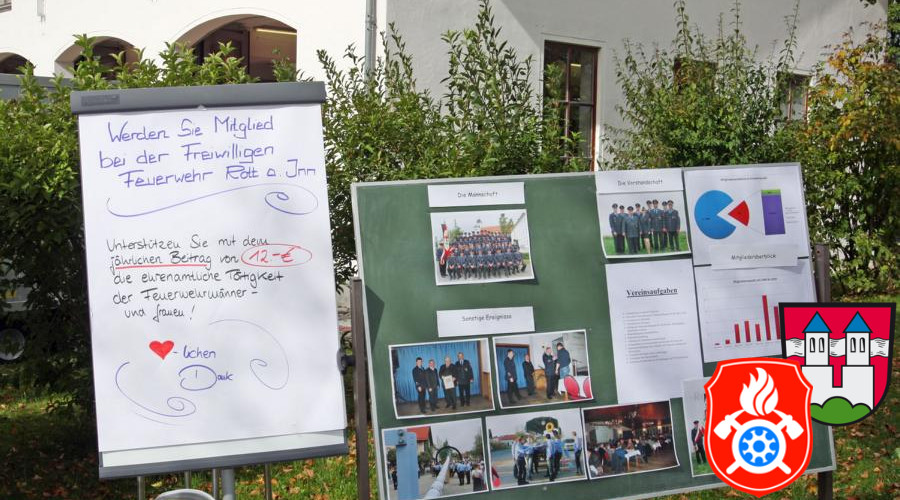 Werden Sie Mitglied
bei der Freiwilligen
Feuerwehr Rott a. Inn
Unterstützen Sie mit dem
jährlichen Beitrag von 12-€
die ehrenamtliche Tätigkeit
der Feuerwehrmänner-
und frauen!
-lichen
Dank
Die Mannschaft
Die Vorstandschaft
Sonstige Ereignisse
Vereinsaufgaben
Mitgliederüberblick